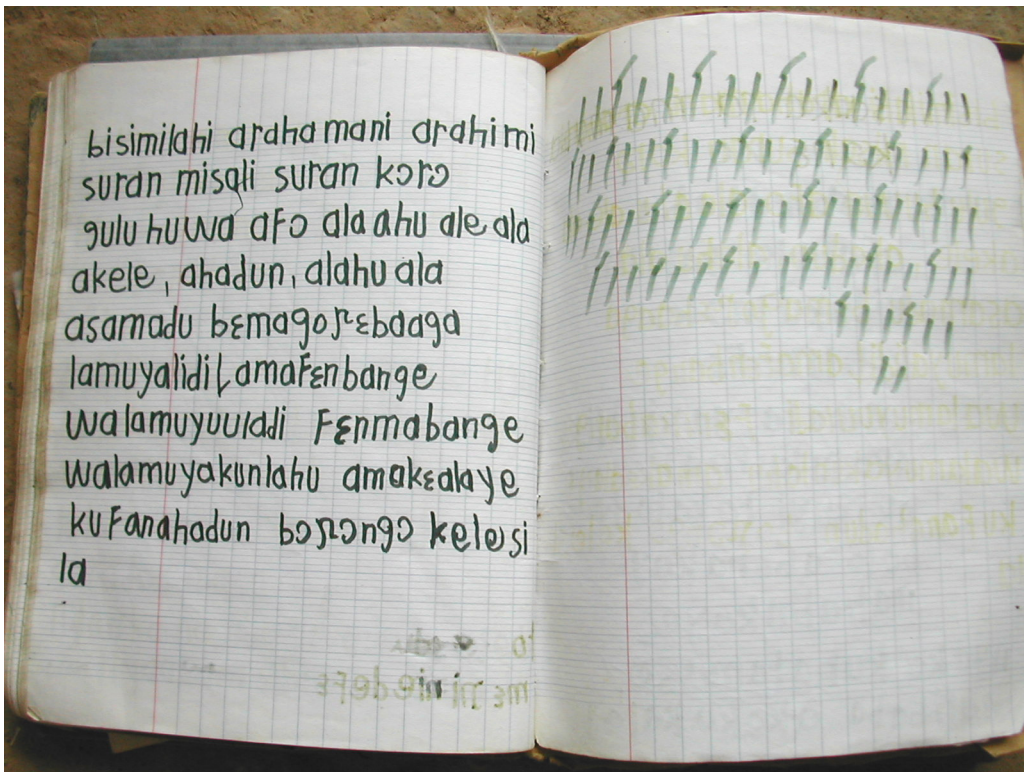 bisimilahi arahamani arahimi
suran misali suran kɔrɔ
gulu huwa aFɔ ala ahu ale ala
akele, ahadun, alahu ala
asamadu bɛmagoɲɛbaaga
lamuyalidi LamaFɛnbange
walamuyuuladi Fɛnmabange
walamuyakunlahu amakɛalaye
kuFanahadun bɔɲɔngɔ kelesi
la